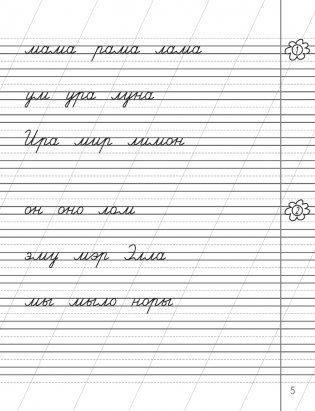 мама рама лама
1
ум ура луна
Ира мир лимон
он оно лом
2
эму мэр Элла
мы мыло норы
5